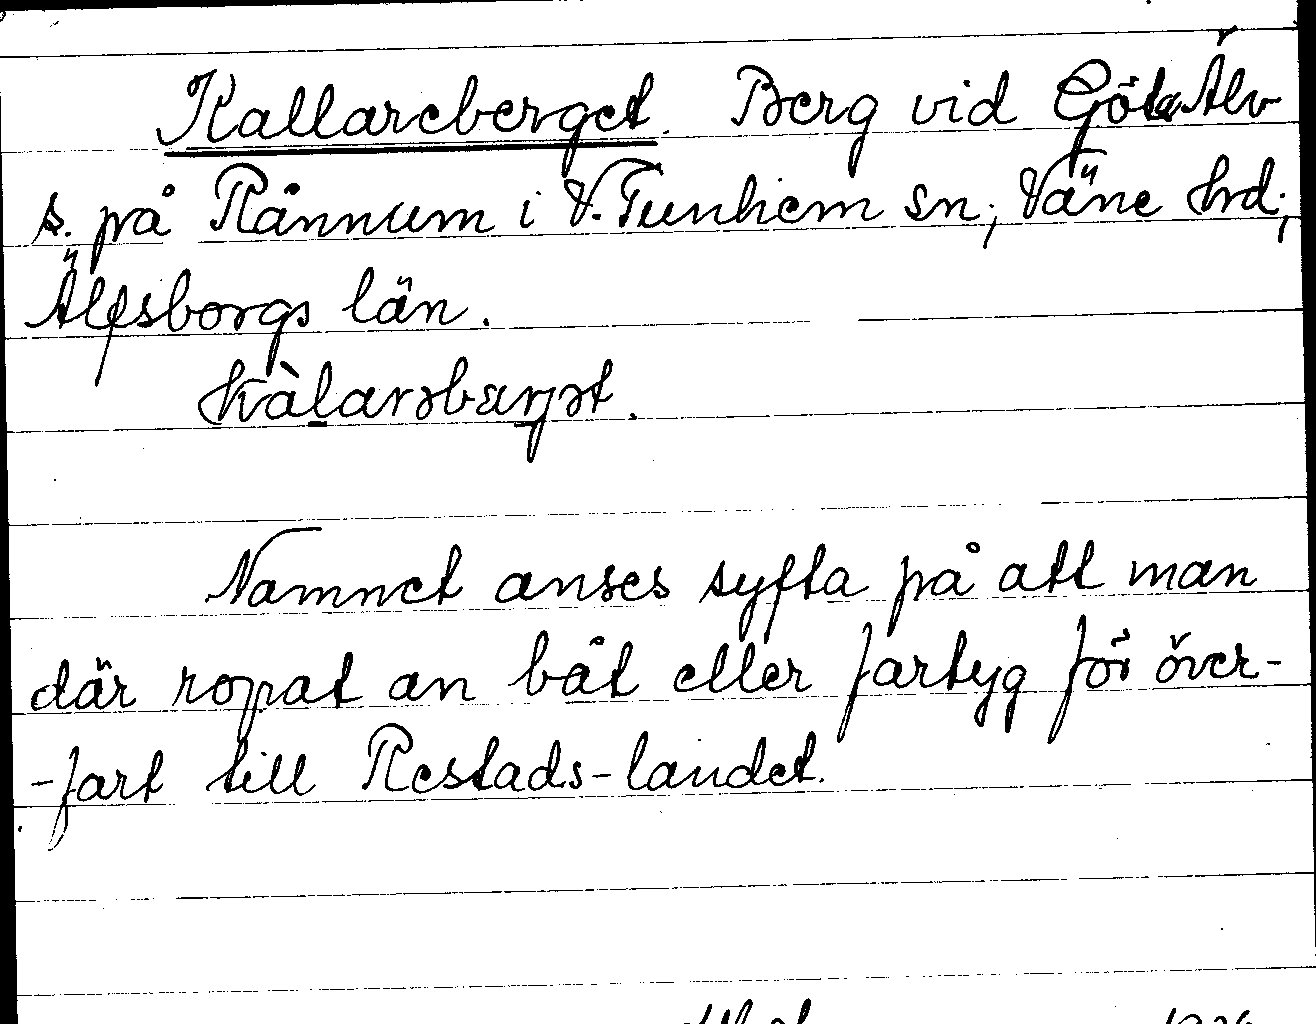 Kallareberget. Berg vid Göta Älv
s. på Rånnum i V. Tunhem sn; Väne hrd;
Älfsborgs län.
kàlarəbærjət.
Namnet anses syfta på att man
där ropat an båt eller fartyg för över-
-fart till Restads-landet.